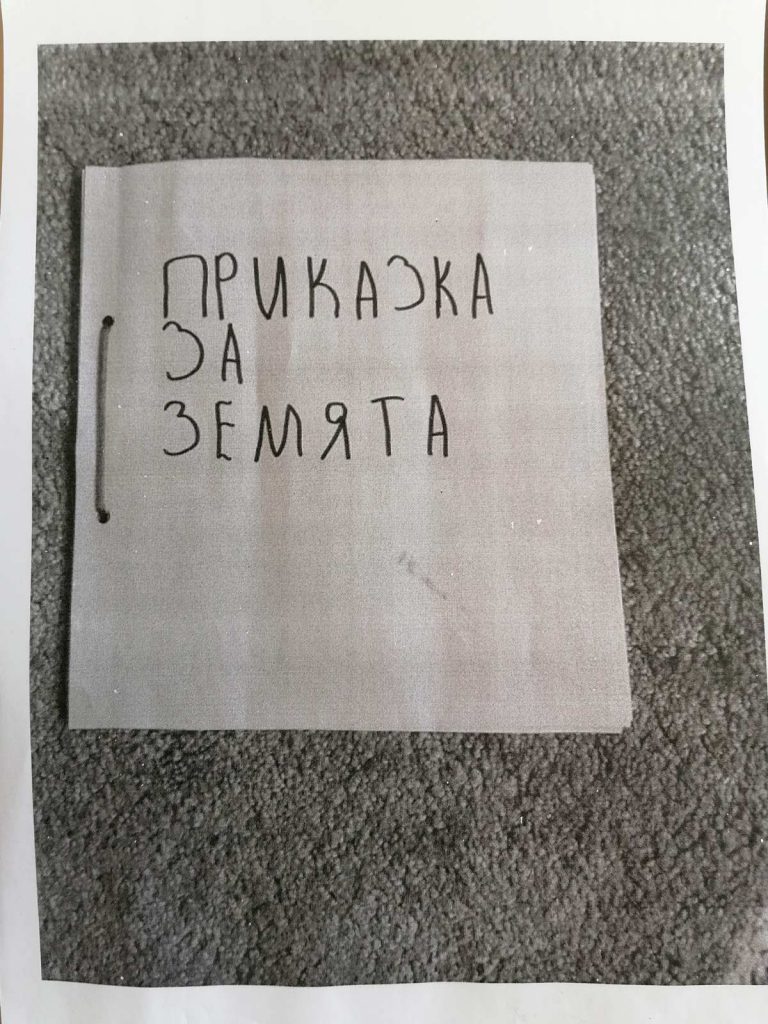 ПРИКАЗКА
ЗА
ЗЕМЯТА